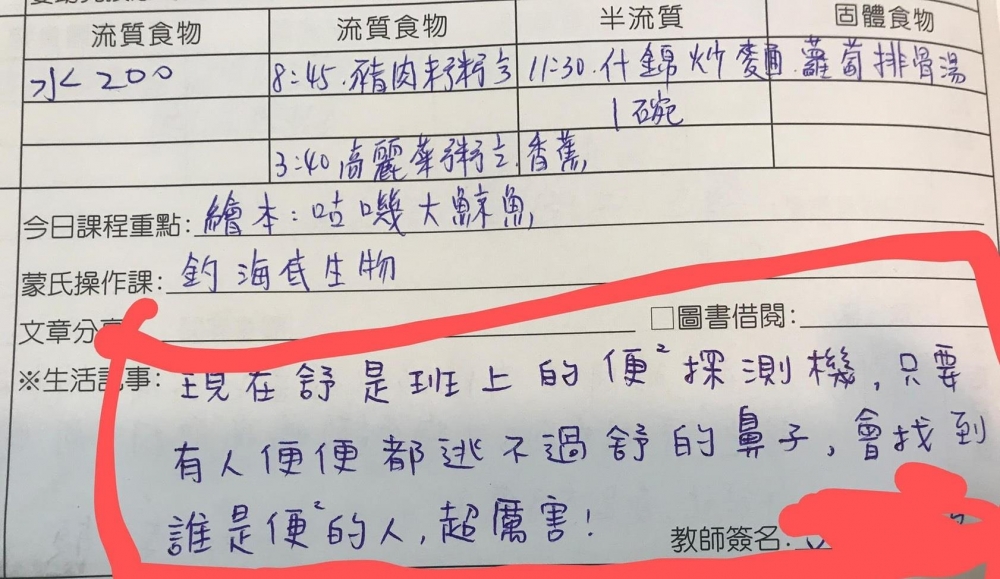 流質食物 流質食物 半流質 固體食物
水 200 8:45.豬肉粥 11:30.什錦炒麵 蘿蔔排骨湯
1碗
3:40高麗菜粥 香蕉
今日課程重點:繪本:咕嘰大鯨魚
蒙氏操作課:釣海底生物
文章分 □圖書借閱:
※生活記事:現在舒是班上的便²探測機,只要
有人便便都逃不過舒的鼻子,會找到
誰是便²的人,超厲害!
教師簽名: